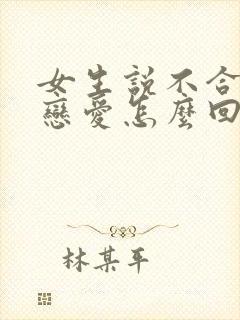 女生說不合
戀愛怎麼回
林某平